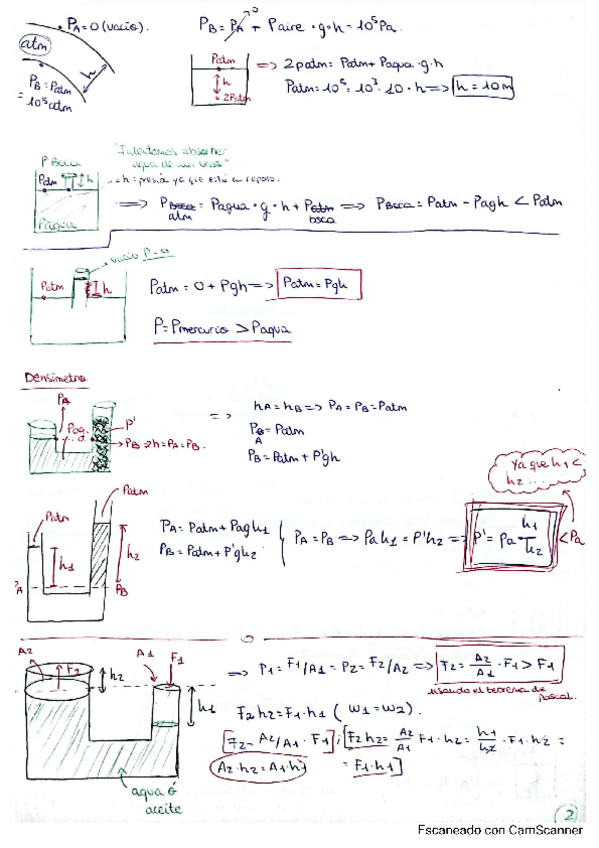 PA = 0 (vacío).
PB = PA + Paire · g · h = 10⁵ Pa.
0
atm
h
PB = Patm
= 10⁵ atm
Patm
h
2Patm
=> 2Patm = Patm + Pagua · g · h
Patm = 10⁵ = 10³ · 10 · h => h = 10m
"Intentamos absorber
agua de un vaso"
P Boca
Patm
h
Pagua
=> Pboca = Pagua · g · h + Patm => PBoca = Patm - Pagh < Patm
atm
boca
vacío P=0
Patm
h
Patm = 0 + Pgh => Patm = Pgh
P = Pmercurio > Pagua
Densímetro
PA
Pag.
P'
PB => h = PA = PB.
=> hA = hB => PA = PB = Patm
PB = Patm
A
PB = Patm + P'gh
Ya que h1 <
h2 ...
Patm
Patm
h1
h2
PA
PB
PA = Patm + Pagh1
PB = Patm + P'gh2
PA = PB => Pah1 = P'h2 => P' = Pa h1/h2 < Pa
A2
F2
h2
A1
F1
h1
=> P1 = F1/A1 = P2 = F2/A2 => F2 = A2/A1 · F1 > F1
usando el teorema de
pascal.
F2h2 = F1 · h1 (W1 = W2).
F2 = A2/A1 · F1 ; F2h2 = A2/A1 F1 · h2 = h1/h2 · F1 · h2 =
A2 · h2 = A1 · h1
= F1 · h1
agua ó
aceite
2
Escaneado con CamScanner